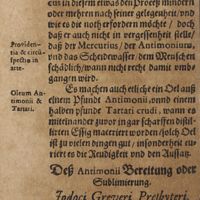 ein in diesem etwas den Proceß mindern
oder mehren nach seiner gelegenheit/ und
wie er die noth erfordern möchte/ doch/
daß er auch nicht in vergessenheit stelle/
daß der Mercurius/ der Antimonium/
und das Scheidewasser/ dem Menschen
schädlich/ wann nicht recht damit umb-
gangen wird.
Providen-
tia & circũ-
spectio in
arte.
Es machen auch etliche ein Oel auß
einem Pfundt Antimonii, vnnd einem
halben pfundt Tartari crudi, wann es
miteinander zuvor in gar scharffen distil-
lirten Essig maceriert worden/ solch Oel
ist zu vielen dingen gut/ insonderheit eus-
sert es die Reudigkeit vnd den Aussatz.
Oleum An-
timonii &
Tartari.
Deß Antimonii Bereitung oder
Sublimierung.
Jodoci Greveri Presbyteri.